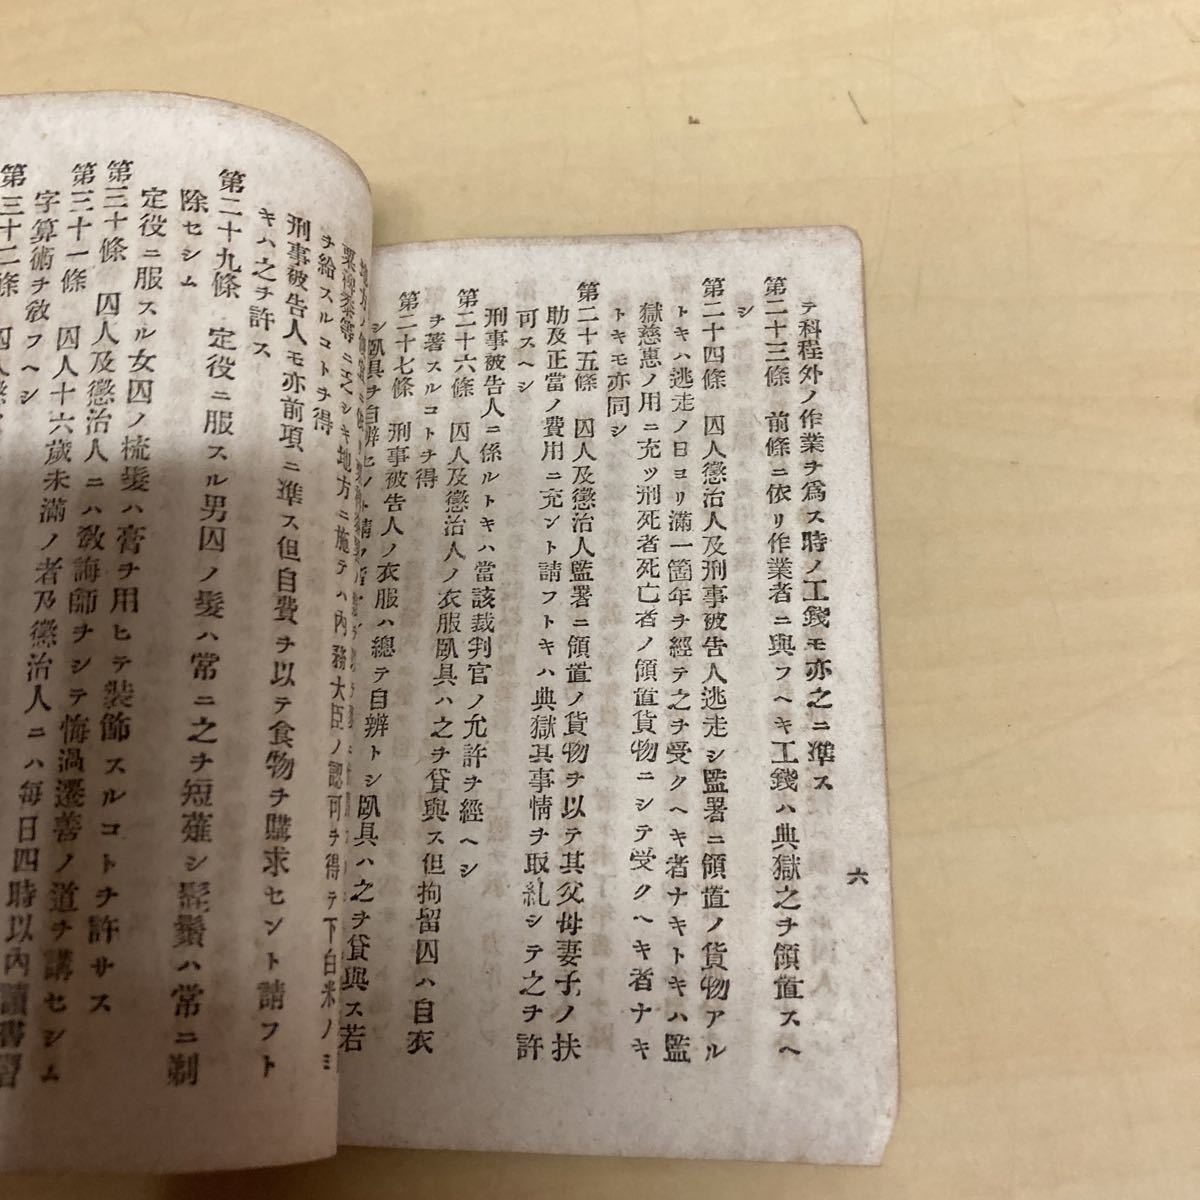 六
テ科程外ノ作業ヲ爲ス時ノ工錢モ亦之ニ準ス
第二十三條　前條ニ依リ作業者ニ與フヘキ工錢ハ典獄之ヲ領置スヘ
シ
第二十四條　囚人懲治人及刑事被告人逃走シ監署ニ領置ノ貨物アル
トキハ逃走ノ日ヨリ滿一箇年ヲ經テ之ヲ受クヘキ者ナキトキハ監
獄慈惠ノ用ニ充ツ刑死者死亡者ノ領置貨物ニシテ受クヘキ者ナキ
トキモ亦同シ
第二十五條　囚人及懲治人監署ニ領置ノ貨物ヲ以テ其父母妻子ノ扶
助及正當ノ費用ニ充ント請フトキハ典獄其事情ヲ取糺シテ之ヲ許
可スヘシ
刑事被告人ニ係ルトキハ當該裁判官ノ允許ヲ經ヘシ
第二十六條　囚人及懲治人ノ衣服臥具ハ之ヲ貸與ス但拘留囚ハ自衣
ヲ著スルコトヲ得
第二十七條　刑事被告人ノ衣服ハ總テ自辨トシ臥具ハ之ヲ貸與ス若
シ臥具ヲ自辨セント請フ
地方ニ施テハ內務大臣ノ認可ヲ得テ下白米ノミ
ヲ給スルコトヲ得
刑事被告人モ亦前項ニ準ス但自費ヲ以テ食物ヲ購求セント請フト
キハ之ヲ許ス
第二十九條　定役ニ服スル男囚ノ髮ハ常ニ之ヲ短薙シ髭鬚ハ常ニ剃
除セシム
定役ニ服スル女囚ノ梳髮ハ膏ヲ用ヒテ裝飾スルコトヲ許サス
第三十條　囚人及懲治人ニハ敎誨師ヲシテ悔過遷善ノ道ヲ講セシム
第三十一條　囚人十六歲未滿ノ者及懲治人ニハ每日四時以內讀書習
字算術ヲ敎フヘシ
第三十二條　囚人及懲